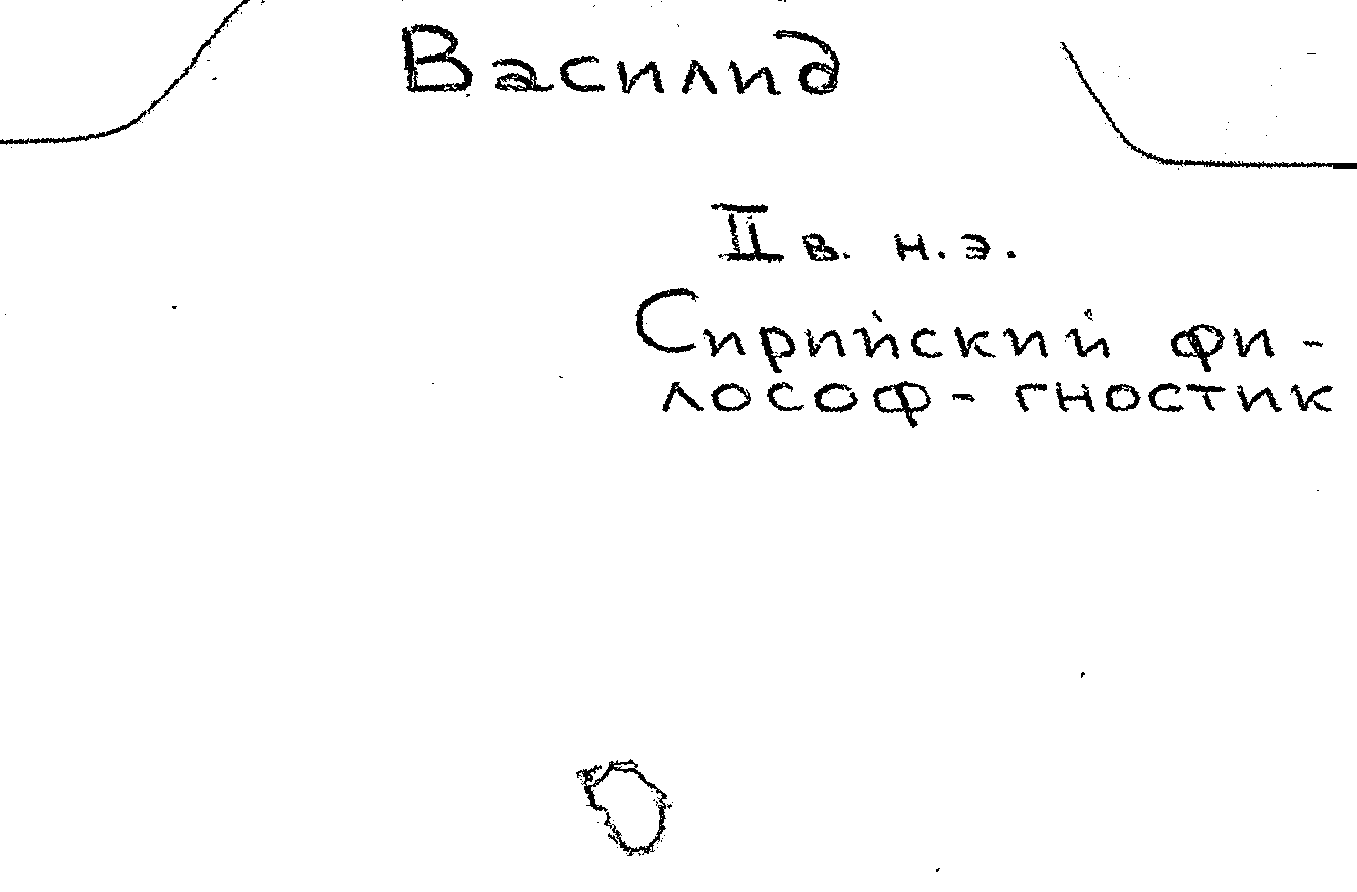 Василид
II в. н.э.
Сирийский фи-
лософ-гностик